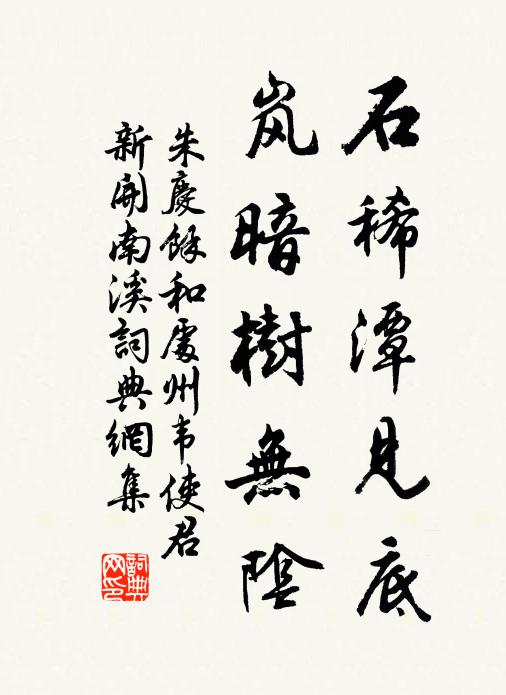 石稀潭見底
岚暗樹無陰
朱慶餘和處州韦使君
新開南溪詞典網集
詞典
网印